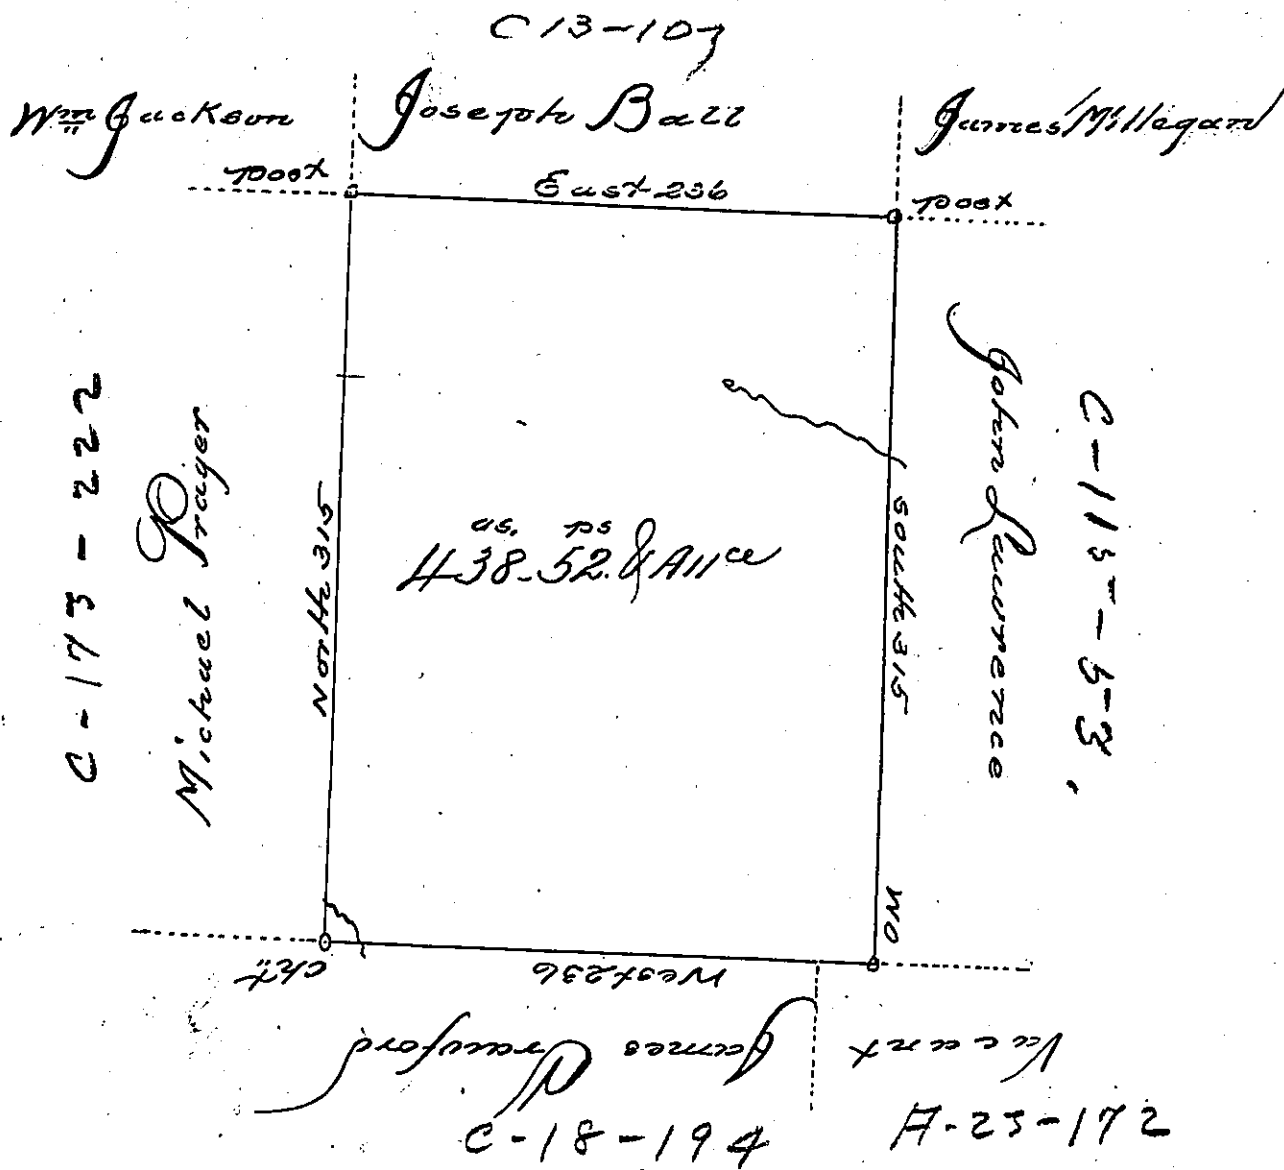 C13-107
Wm Jackson
Joseph Ball
James Millegan
Post
East 236
Post
C-173-222
Michael Prager
North 315
as. ps
438-52. & Allce
South 315
John Lawrence
C-115-53,
WO
Cht.
West 236
James Crawford
Vacant
C-18-194
A-23-172